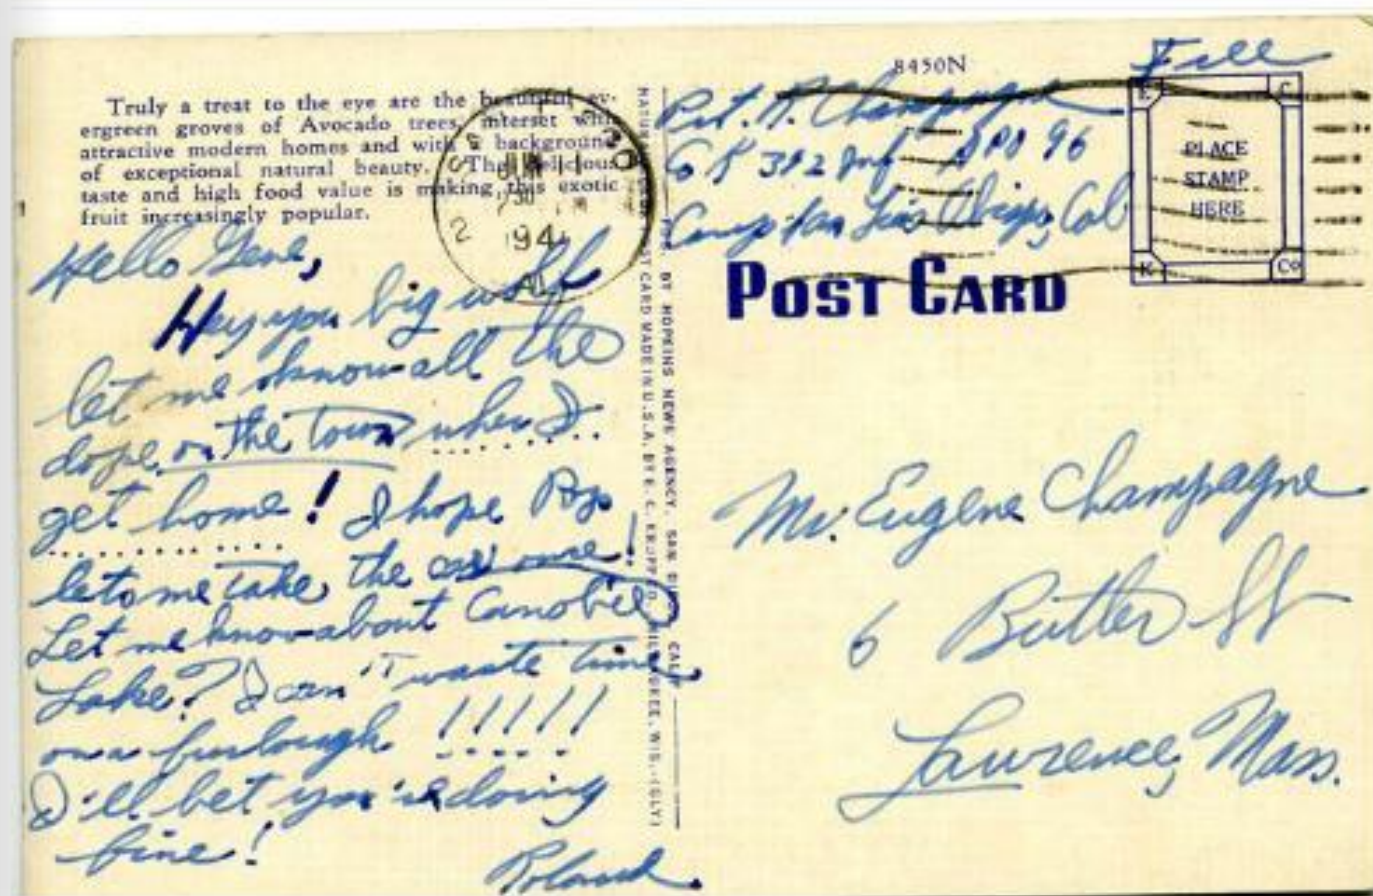 Truly a treat to the eye are the beautiful ev-
ergreen groves of Avocado trees, interset with
attractive modern homes and with a background
of exceptional natural beauty. The delicious
taste and high food value is making this exotic
fruit increasingly popular.
Hello Gene,
Hey you big wolf
let me know all the
dope on the town when I
get home! I hope Pop
lets me take the car once!
Let me know about Canobie
Lake? I can't waste time
on a furlough !!!!!
I'll bet you're doing
fine!
Roland.
PUB. BY HOPKINS NEWS AGENCY, SAN CALIF
POST CARD MADE IN U.S.A. BY E. C. KROPP CO. MILWAUKEE, WIS.-(GLY)
8450N
Pvt. R. Champagne
Co K 382 Inf APO 96
Camp San Luis Obispo, Cal
POST CARD
PLACE
STAMP
HERE
E C
K Co
JUN 11
730
194
2
Mr. Eugene Champagne
6 Butler St
Lawrence, Mass.